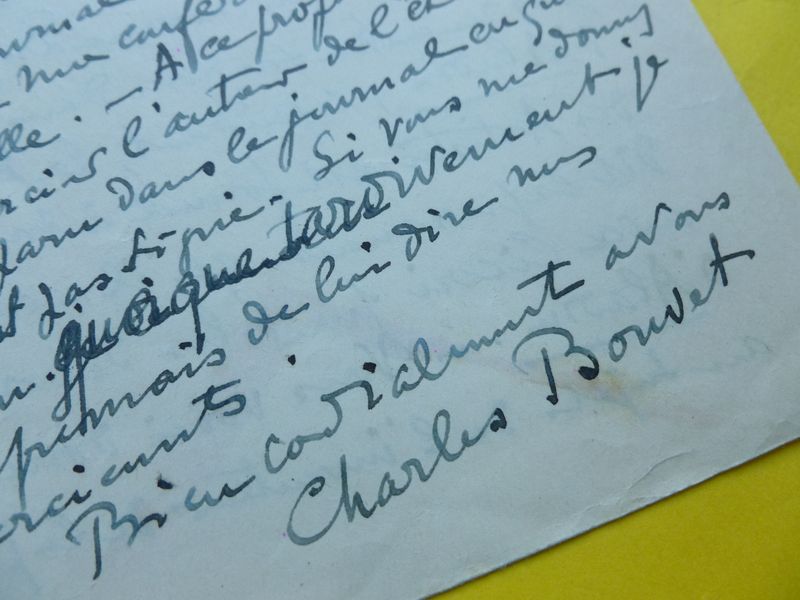 ournal
ma confé
lle. — A ce prop
rcier l'auteur de l'e
paru dans le journal en qu
st pas signé. Si vous me donniez
quoique tardivement je
pourrais de lui dire mes
erciements.
Bien cordialement à vous
Charles Bouvet